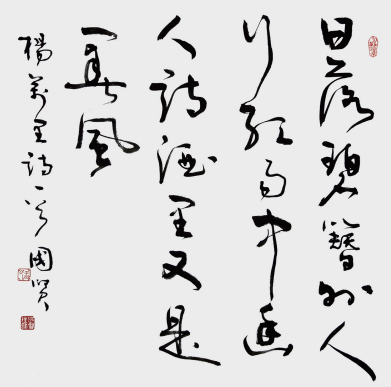 日落碧簪外人
行紅雨中幽
人詩酒里又是
一春風
楊萬里詩一首國賢